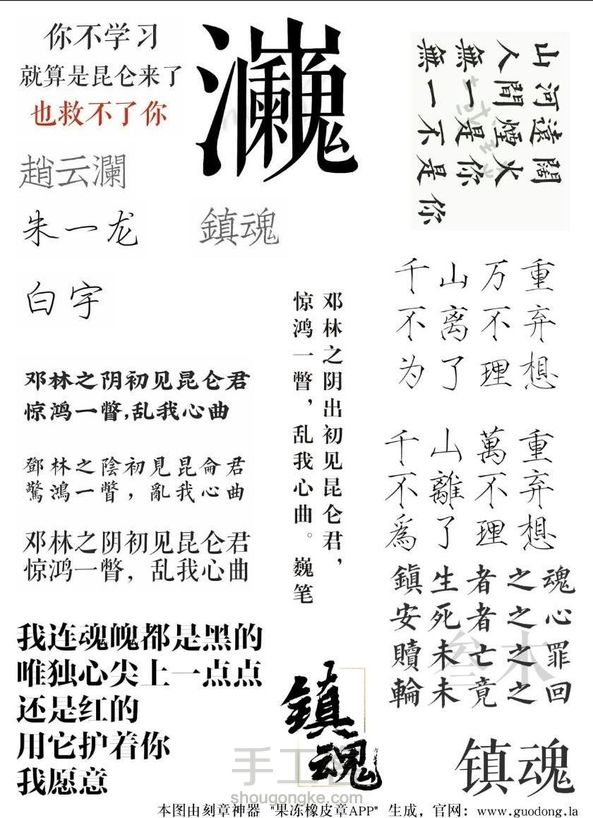 你不学习
就算是昆仑来了
也救不了你
山河遠闊
人間煙火
無一是你
無一不是你
趙云瀾
朱一龙
鎮魂
白宇
千山万重
不离不弃
为了理想
邓林之阴出初见昆仑君，
惊鸿一瞥，乱我心曲。巍笔
邓林之阴初见昆仑君
惊鸿一瞥,乱我心曲
鄧林之陰初見昆侖君
驚鴻一瞥，亂我心曲
邓林之阴初见昆仑君
惊鸿一瞥，乱我心曲
千山萬重
不離不弃
為了理想
鎮生者之魂
安死者之心
贖未亡之罪
輪未竟之回
叁木
我连魂魄都是黑的
唯独心尖上一点点
还是红的
用它护着你
我愿意
鎮魂
镇魂
手工客
shougongke.com
本图由刻章神器 "果冻橡皮章APP" 生成，官网：www.guodong.la